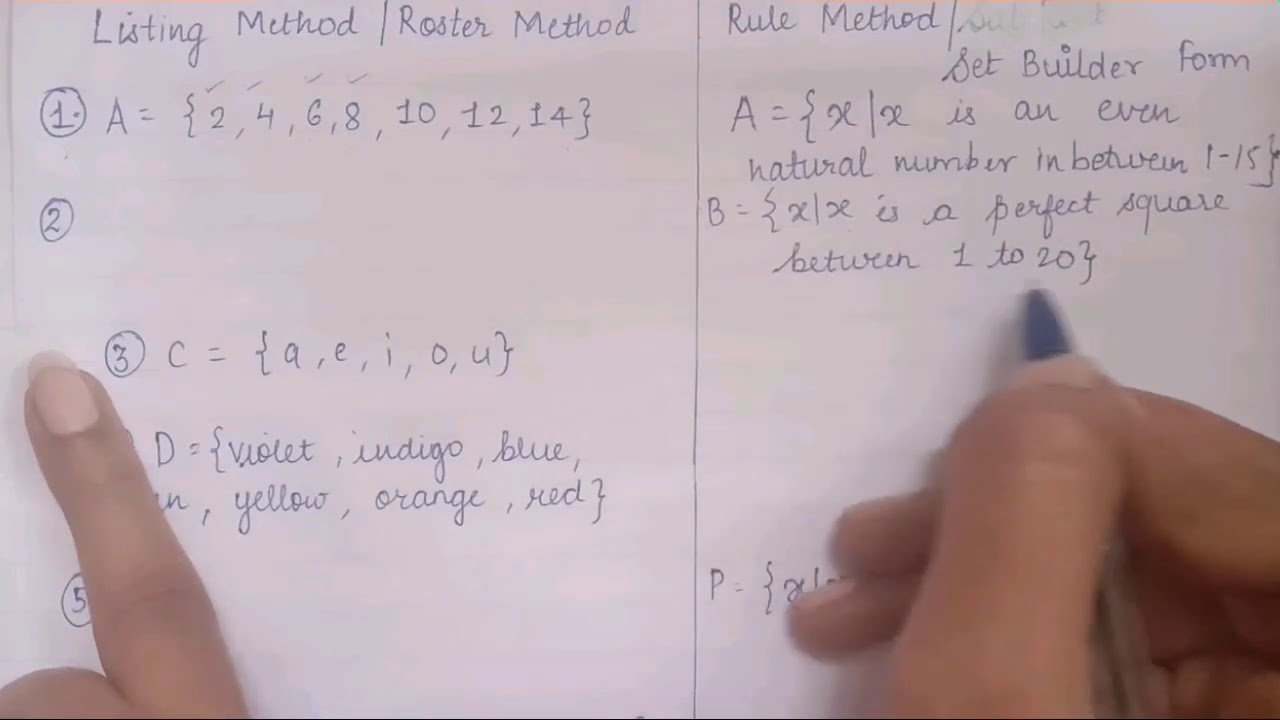 Listing Method / Roster Method
Rule Method /
Set Builder Form
1. A = {2, 4, 6, 8, 10, 12, 14}
A = {x | x is an even
natural number in between 1-15}
2
B = {x | x is a perfect square
between 1 to 20}
3 C = {a, e, i, o, u}
D = {violet, indigo, blue,
, yellow, orange, red}
5
P = {x |